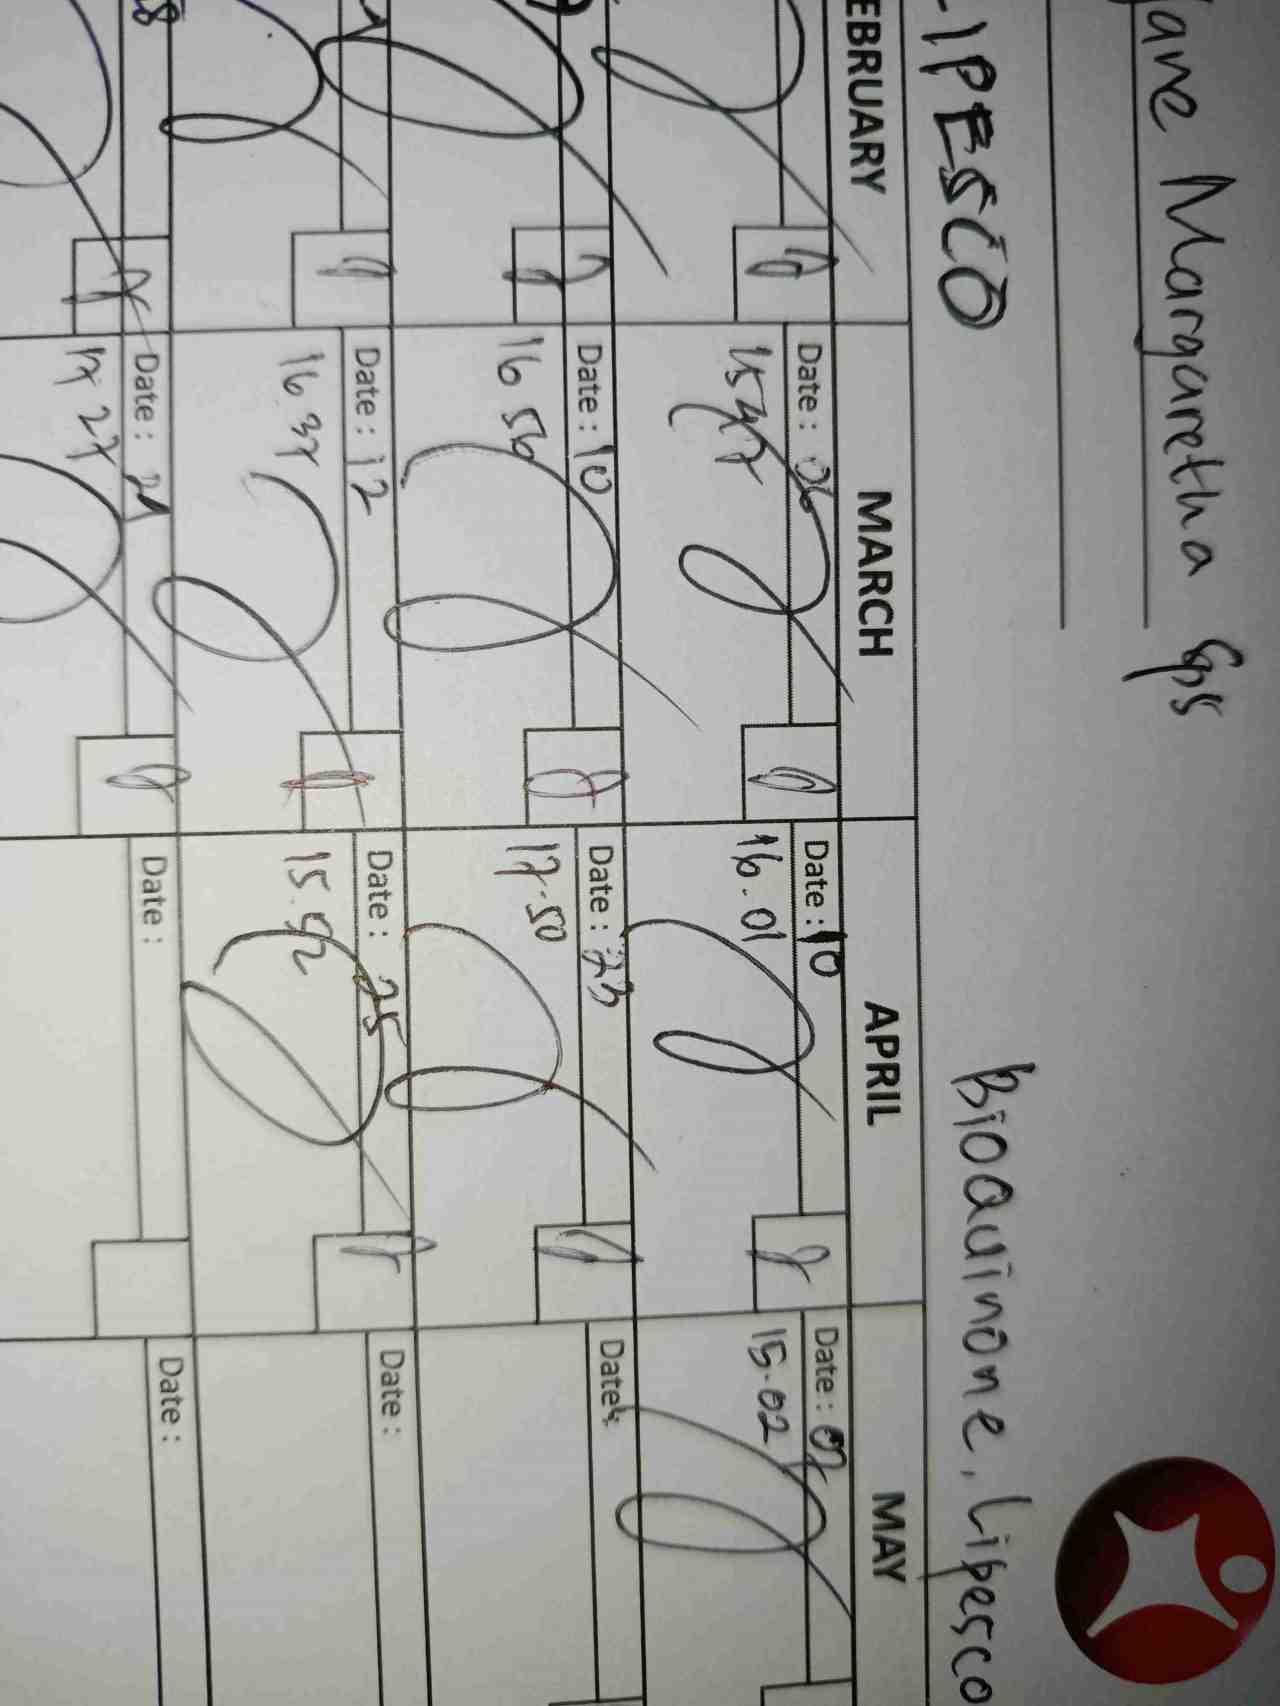 Jane Margaretha Gps
LIPESCO
Bioquinone, Lipesco
EBRUARY MARCH APRIL MAY
Date : 06 Date : 10 Date : 07
15 47 16.01 15.02
Date : 10 Date : 23 Date :
16 56 17.50
Date : 12 Date : 25 Date :
16 37 15.52
Date : 21 Date : Date :
17 27